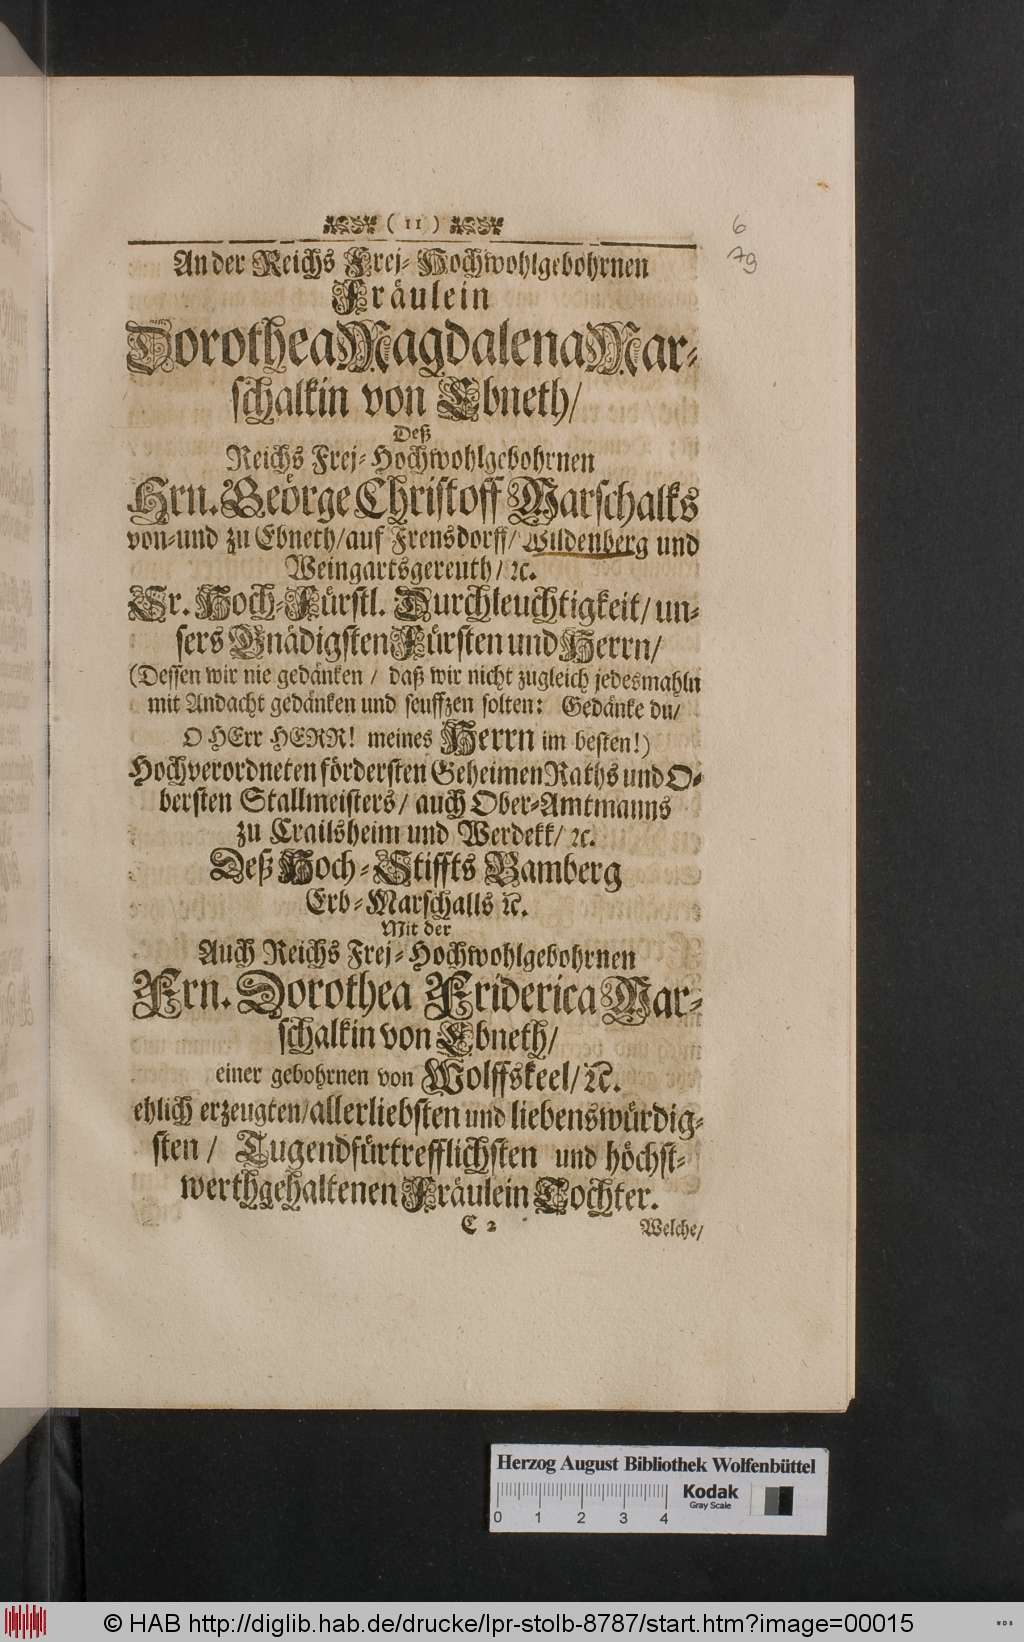 ( 11 )
6
79
An der Reichs Frej-Hochwohlgebohrnen
Fräulein
Dorothea Magdalena Mar-
schalkin von Ebneth/
Deß
Reichs Frej-Hochwohlgebohrnen
Hrn. Geörge Christoff Marschalks
von-und zu Ebneth/auf Frensdorff/ Wildenberg und
Weingartsgereuth/ ꝛc.
Sr. Hoch-Fürstl. Durchleuchtigkeit/ un-
sers Gnädigsten Fürsten und Herrn/
(Dessen wir nie gedänken / daß wir nicht zugleich jedesmahln
mit Andacht gedänken und seuffzen solten: Gedänke du/
O HErr HERR! meines Herrn im besten!)
Hochverordneten fördersten Geheimen Raths und O-
bersten Stallmeisters/ auch Ober-Amtmanns
zu Crailsheim und Werdekk/ ꝛc.
Deß Hoch-Stiffts Bamberg
Erb-Marschalls ꝛc.
Mit der
Auch Reichs Frej-Hochwohlgebohrnen
Frn. Dorothea Friderica Mar-
schalkin von Ebneth/
einer gebohrnen von Wolffskeel/ ꝛc.
ehlich erzeugten/allerliebsten und liebenswürdig-
sten / Tugendfürtrefflichsten und höchst-
werthgehaltenen Fräulein Tochter.
C 2
Welche/
Herzog August Bibliothek Wolfenbüttel
Kodak
Gray Scale
0 1 2 3 4
© HAB http://diglib.hab.de/drucke/lpr-stolb-8787/start.htm?image=00015